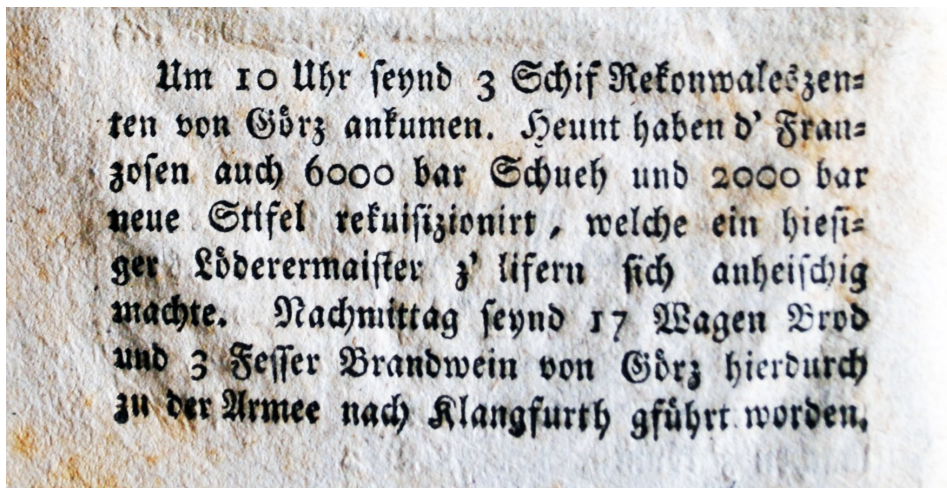 Um 10 Uhr ſeynd 3 Schif Rekonwaleszen⸗
ten von Görz ankumen. Heunt haben d' Fran⸗
zoſen auch 6000 bar Schueh und 2000 bar
neue Stifel rekuiſizionirt, welche ein hieſi⸗
ger Löderermaiſter z' lifern ſich anheiſchig
machte. Nachmittag ſeynd 17 Wagen Brod
und 3 Feſſer Brandwein von Görz hierdurch
zu der Armee nach Klangfurth gführt worden.